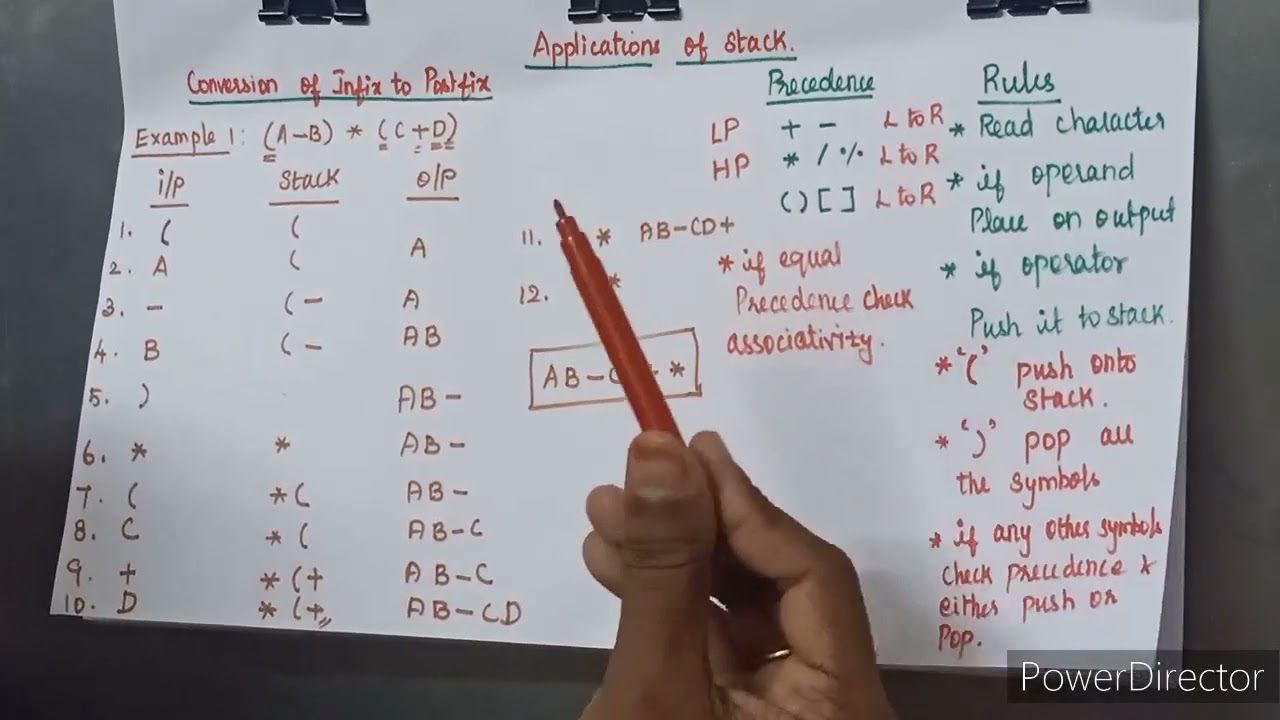 Applications of Stack.
Conversion of Infix to Postfix
Example 1: (A-B) * (C+D)
i/p Stack o/p
1. ( (
2. A ( A
3. - (- A
4. B (- AB
5. ) AB-
6. * * AB-
7. ( *( AB-
8. C *( AB-C
9. + *(+ AB-C
10. D *(+ AB-CD
11. * AB-CD+
12. *
AB-C *
Precedence
LP + - L to R
HP * / % L to R
( ) [ ] L to R
* if equal
Precedence check
associativity.
Rules
* Read character
* if operand
Place on output
* if operator
Push it to stack.
* '(' push onto
stack.
* ')' pop all
the symbols
* if any other symbols
check precedence &
either push or
Pop.
PowerDirector